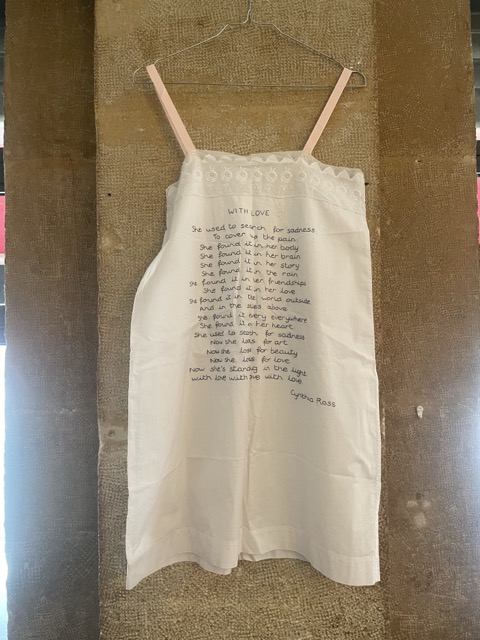 WITH LOVE
She used to search for sadness
To cover up the pain
She found it in her body
She found it in her brain
She found it in her story
She found it in the rain
She found it in her friendships
She found it in her love
She found it in the world outside
And in the skies above
She found it every everywhere
She found it in her heart
She used to search for sadness
Now she looks for art
Now she looks for beauty
Now she looks for love
Now she's standing in the light
with love with love with love
Cynthia Ross